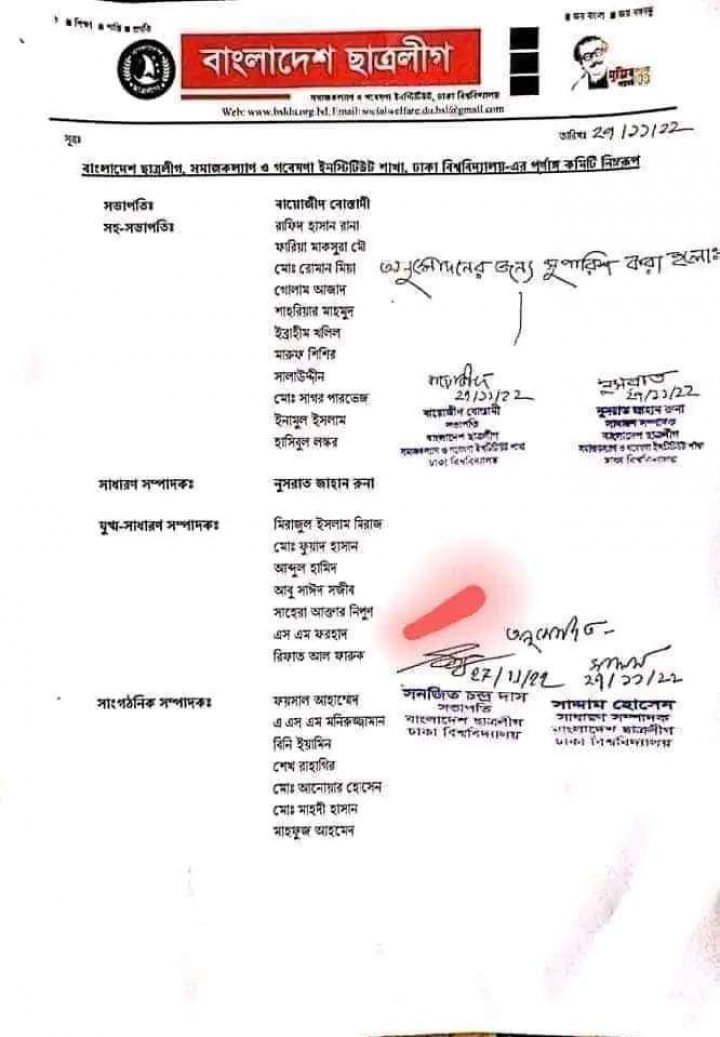 ★ শিক্ষা ★ শান্তি ★ প্রগতি
★ জয় বাংলা ★ জয় বঙ্গবন্ধু
বাংলাদেশ ছাত্রলীগ
সমাজকল্যাণ ও গবেষণা ইনস্টিটিউট, ঢাকা বিশ্ববিদ্যালয়
Web: www.bsldu.org.bd, Email: socialwelfare.du.bsl@gmail.com
সূত্রঃ
তারিখঃ 27/11/22
বাংলাদেশ ছাত্রলীগ, সমাজকল্যাণ ও গবেষণা ইনস্টিটিউট শাখা, ঢাকা বিশ্ববিদ্যালয়-এর পূর্ণাঙ্গ কমিটি নিম্নরূপ
সভাপতিঃ বায়োজীদ বোস্তামী
সহ-সভাপতিঃ রাফিদ হাসান রানা
ফারিয়া মাকসুরা মৌ
মোঃ রোমান মিয়া
অনুমোদনের জন্য সুপারিশ করা হলোঃ
গোলাম আজাদ
শাহরিয়ার মাহমুদ
ইব্রাহীম খলিল
মারুফ শিশির
সালাউদ্দীন
মোঃ সাগর পারভেজ
ইনামুল ইসলাম
হাসিবুল লস্কর
বায়োজীদ
27/11/22
বায়োজীদ বোস্তামী
সভাপতি
বাংলাদেশ ছাত্রলীগ
সমাজকল্যাণ ও গবেষণা ইনস্টিটিউট শাখা
ঢাকা বিশ্ববিদ্যালয়
নুসরাত
27/11/22
নুসরাত জাহান রুনা
সাধারণ সম্পাদক
বাংলাদেশ ছাত্রলীগ
সমাজকল্যাণ ও গবেষণা ইনস্টিটিউট শাখা
ঢাকা বিশ্ববিদ্যালয়
সাধারণ সম্পাদকঃ নুসরাত জাহান রুনা
যুগ্ম-সাধারণ সম্পাদকঃ মিরাজুল ইসলাম মিরাজ
মোঃ ফুয়াদ হাসান
আব্দুল হামিদ
আবু সাঈদ সজীব
সাহেরা আক্তার নিপুণ
এস এম ফরহাদ
রিফাত আল ফারুক
অনুমোদিত-
27/11/22
সনজিত চন্দ্র দাস
সভাপতি
বাংলাদেশ ছাত্রলীগ
ঢাকা বিশ্ববিদ্যালয়
সাদ্দাম
27/11/22
সাদ্দাম হোসেন
সাধারণ সম্পাদক
বাংলাদেশ ছাত্রলীগ
ঢাকা বিশ্ববিদ্যালয়
সাংগঠনিক সম্পাদকঃ ফয়সাল আহাম্মেদ
এ এস এম মনিরুজ্জামান
বিনি ইয়ামিন
শেখ রাহাগির
মোঃ আনোয়ার হোসেন
মোঃ মাহদী হাসান
মাহফুজ আহমেদ